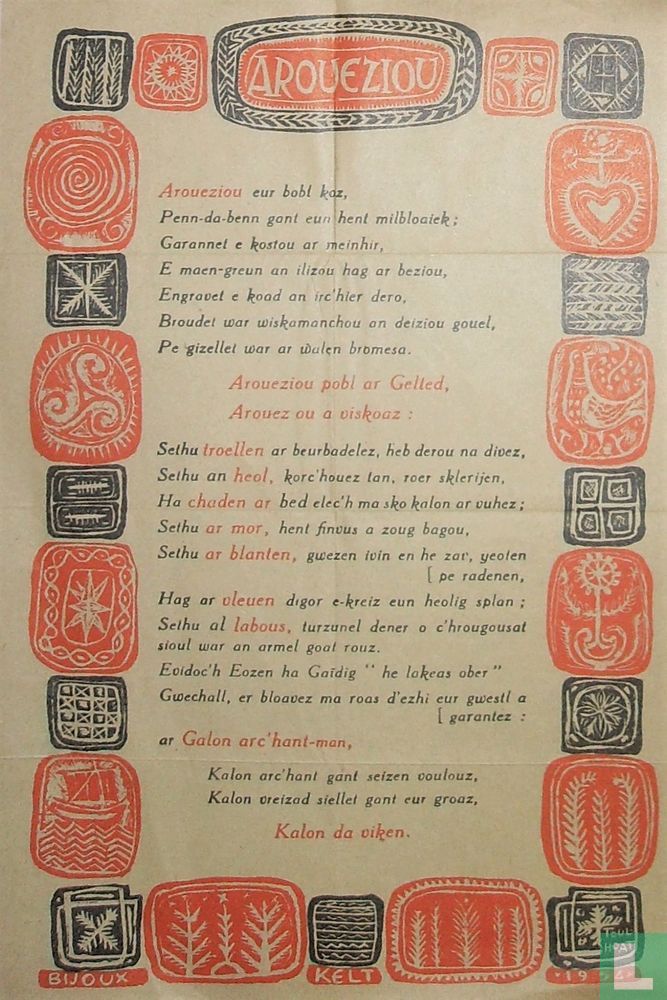 AROUEZIOU
Aroueziou eur bobl koz,
Penn-da-benn gant eun hent milbloaiek ;
Garannet e kostou ar meinhir,
E maen-greun an ilizou hag ar beziou,
Engravet e koad an irc'hier dero,
Broudet war wiskamanchou an deiziou gouel,
Pe gizellet war ar walen bromesa.
Aroueziou pobl ar Gelted,
Arouez ou a viskoaz :
Sethu troellen ar beurbadelez, heb derou na divez,
Sethu an heol, korc'houez tan, roer sklerijen,
Ha chaden ar bed elec'h ma sko kalon ar vuhez ;
Sethu ar mor, hent finvus a zoug bagou,
Sethu ar blanten, gwezen ivin en he zav, yeoten
[ pe radenen,
Hag ar vleuen digor e-kreiz eun heolig splan ;
Sethu al labous, turzunel dener o c'hrougousat
sioul war an armel goat rouz.
Evidoc'h Eozen ha Gaïdig " he lakeas ober "
Gwechall, er bloavez ma roas d'ezhi eur gwestl a
[ garantez :
ar Galon arc'hant-man,
Kalon arc'hant gant seizen voulouz,
Kalon vreizad siellet gant eur groaz,
Kalon da viken.
BIJOUX KELT 1954
TOUL HOAT